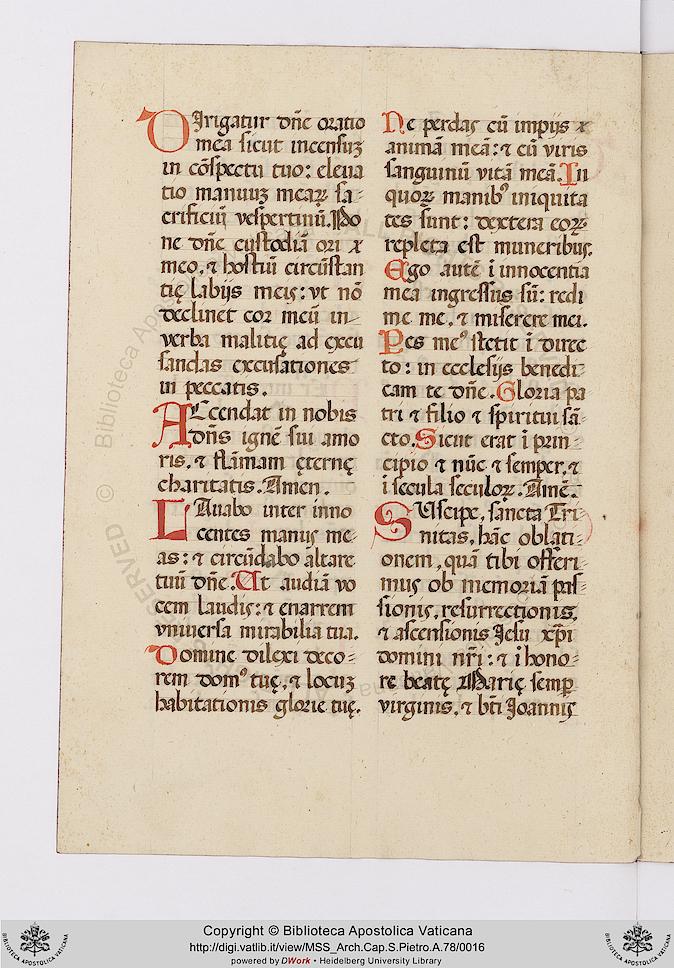 Dirigatur dn̄e oratio
mea sicut incensuʒ
in cōspectu tuo: eleua
tio manuuʒ mearꝝ sa-
crificiū vespertinū. Po
ne dn̄e custodiā ori
meo, ⁊ hostiū circūstan
tię labijs meis: vt nō
declinet cor meū in-
verba malitię ad excu
sandas excusationes
in peccatis.
AScendat in nobis
dn̄s ignē sui amo
ris, ⁊ flāmam ęternę
charitatis. Amen.
LAuabo inter inno
centes manus me-
as: ⁊ circūdabo altare
tuū dn̄e. Ut audiā vo
cem laudis: ⁊ enarrem
vniuersa mirabilia tua.
Domine dilexi deco-
rem domꝰ tuę, ⁊ locuʒ
habitationis glorie tuę.
Ne perdas cū impijs
animā meā: ⁊ cū viris
sanguinū vitā meā. In
quorꝝ manibꝰ iniquita
tes sunt: dextera eorꝝ
repleta est muneribus.
Ego autē ī innocentia
mea ingressus sū: redi
me me, ⁊ miserere mei.
Pes meꝰ stetit ī direc
to: in ecclesijs benedi
cam te dn̄e. Gloria pa
tri ⁊ filio ⁊ spiritui sā-
cto. Sicut erat ī prin-
cipio ⁊ nūc ⁊ semper, ⁊
ī secula seculorꝝ. Amē.
SUscipe, sancta Tri-
nitas, hāc oblati-
onem, quā tibi offeri-
mus ob memoriā pas-
sionis, resurrectionis,
⁊ ascensionis Jesu xp̄i
domini nr̄i: ⁊ ī hono-
re beatę Marię semꝑ
virginis, ⁊ bt̄i Joannis
Copyright © Biblioteca Apostolica Vaticana
http://digi.vatlib.it/view/MSS_Arch.Cap.S.Pietro.A.78/0016
powered by DWork • Heidelberg University Library